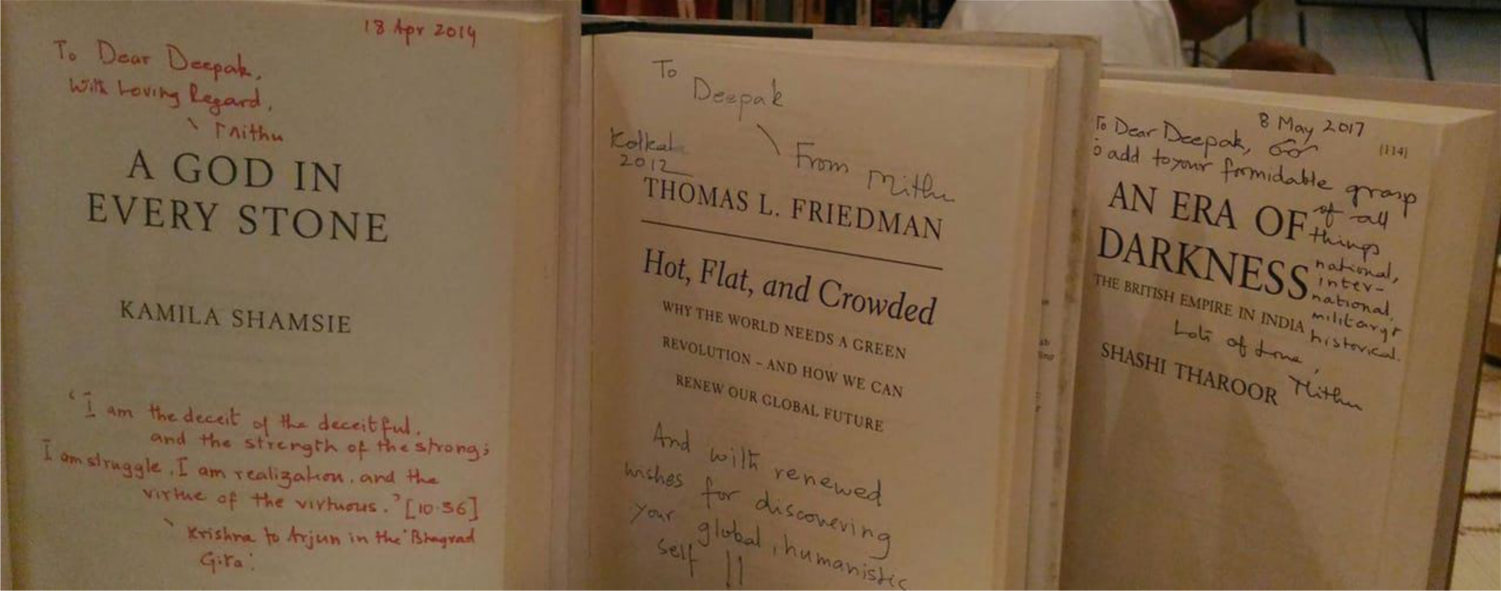 18 Apr 2014
To Dear Deepak,
With Loving Regard,
Mithu
A GOD IN
EVERY STONE
KAMILA SHAMSIE
'I am the deceit of the deceitful,
and the strength of the strong;
I am struggle, I am realization, and the
virtue of the virtuous.' [10.36]
Krishna to Arjun in the 'Bhagvad
Gita'.
To
Deepak
From Mithu
Kolkat
2012
THOMAS L. FRIEDMAN
Hot, Flat, and Crowded
WHY THE WORLD NEEDS A GREEN
REVOLUTION – AND HOW WE CAN
RENEW OUR GLOBAL FUTURE
And with renewed
wishes for discovering
your global, humanistic
self !!
8 May 2017
To Dear Deepak,
to add to your formidable grasp
of all
things
national,
inter-
national,
military &
historical.
AN ERA OF
DARKNESS
THE BRITISH EMPIRE IN INDIA
Lots of love,
Mithu
SHASHI THAROOR